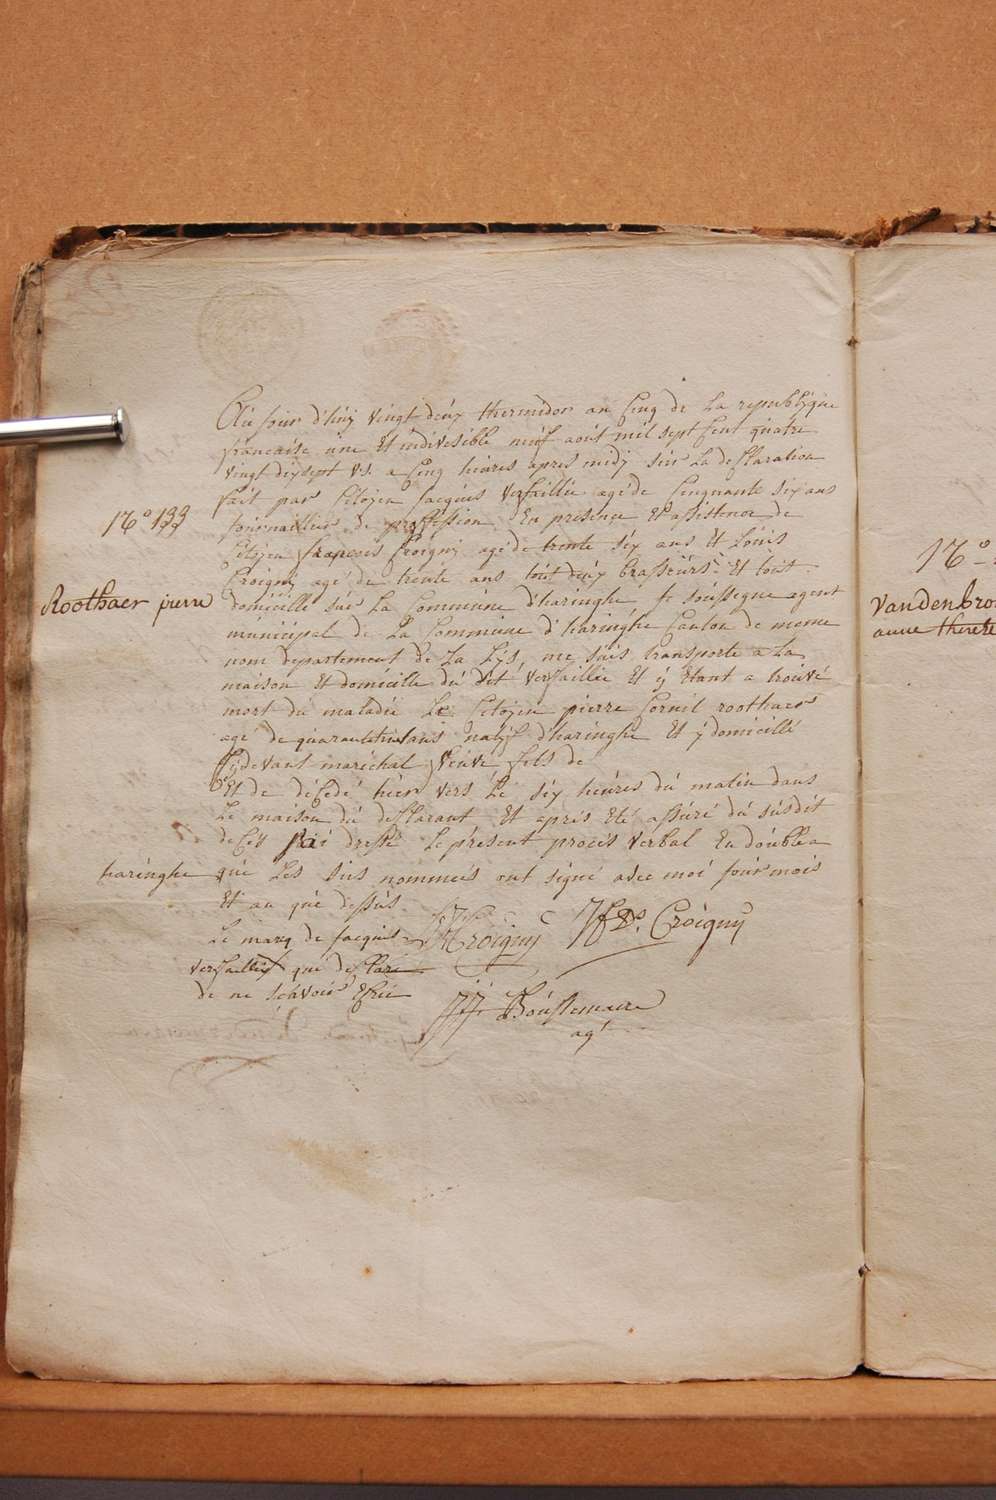 Au jour d'huy vingt deux thermidor an cinq de la republique
francaise une et indivisible neuf aout mil sept cent quatre
vingt dix sept v.s. a cinq heures apres midy sur la declaration
fait par citoyen Jacques versaillie agé de cinquante six ans
journaillier de profession, En presence et assistence de
Citoyen francois Croigny age de trente six ans et Louis
Croigny age de trente ans tout deux brasseurs et tout
domicille sur la Commune d'haringhe je soussigne agent
municipal de la Commune d'haringhe Canton de meme
nom departement de la Lys, me suis transporte a la
maison et domicille du dit versaillie et y étant a trouvé
mort du maladie le Citoyen pierre Cornil roothaer
age de quarante ans natif d'haringhe et y domicillé
Cydevant maréchal veuve fils de
et de décedé hier vers le six heures du matin dans
le maison du desclarant et apris eté assuré du susdit
deces j'ai dressé le present procés verbal En double
que les sus nommeés ont signé avec moi jour mois
et an que dessus
N° 133
Roothaer pierre
haringhe
Le marq de Jacques
versaillie que desclare
de ne scavoir Ecrie
L Croigny
fs. Croigny
JJ Boustemaere
ag^t
N°
Vandenbro
anne there